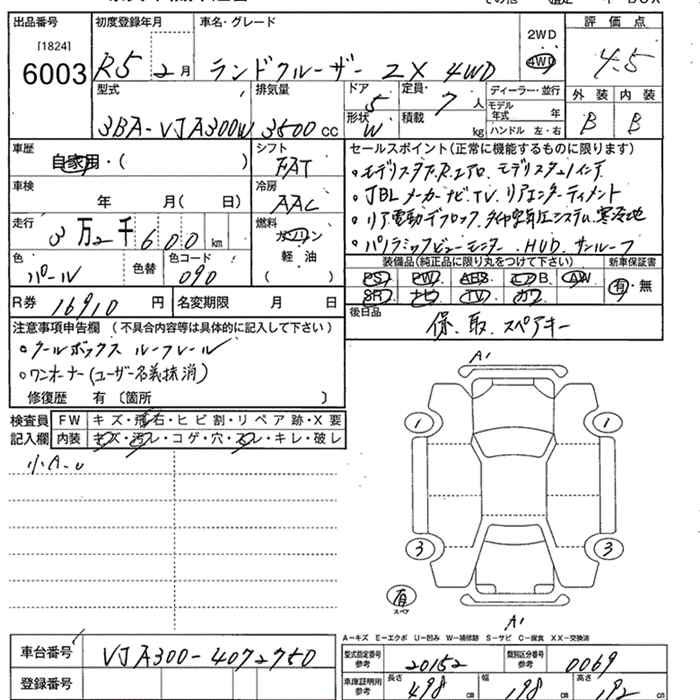 出品番号 初度登録年月 車名・グレード 2WD 評価点
[1824] 6003 R5 2月 ランドクルーザー ZX 4WD 4WD 4.5
型式 排気量 ドア 定員 ディーラー・並行 外装 内装
3BA-VJA300W 3500cc 5 7人 モデル年式 年 B B
形状 W 積載 kg ハンドル 左・右
車歴 自家用・( ) シフト FAT
セールスポイント(正常に機能するものに限ります)
車検 年 月( 日) 冷房 AAC
。モデリスタ F.R.エアロ. モデリスタ21インチ
。JBL メーカーナビ.TV. リアエンターテイメント
走行 3万2千600km 燃料 ガソリン 軽油 ( )
。リア電動デフロック. タイヤ空気圧システム. 寒冷地
。パノラミックビューモニター. HUD. サンルーフ
色 パール 色替 色コード 090
装備品(純正品に限り丸をつけて下さい) 新車保証書
PS・PW・ABS・エアB・AW 有・無
SR・ナビ・TV・カワ
R券 16910円 名変期限 月 日
後日品 保. 取. スペアキー
注意事項申告欄(不具合内容等は具体的に記入して下さい)
。クールボックス ルーフレール
。ワンオーナー(ユーザー名義抹消)
修復歴 有〔箇所 〕
検査員記入欄 FW キズ・飛石・ヒビ割・リペア跡・X要
内装 キズ・汚レ・コゲ・穴・スレ・キレ・破レ
小A-U
A1
1 1
3 3
有 スペア
A1
A-キズ E-エクボ U-凹み W-補修跡 S-サビ C-腐食 XX-交換済
車台番号 VJA300-4072750
型式指定番号 参考 20152 類別区分番号 参考 0069
登録番号
車庫証明用 参考 長さ 498cm 幅 198cm 高さ 192cm